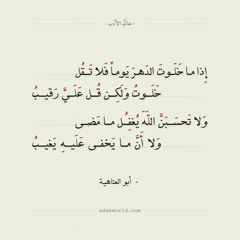 - عالم الأدب -
إذا ما خَلَوتَ الدَهرَ يَوماً فَلا تَقُل
خَلَوتُ وَلَكِن قُل عَلَيَّ رَقيبُ
وَلا تَحسَبَنَّ اللَهَ يُغفِلُ ما مَضى
وَلا أَنَّ ما يَخفى عَلَيهِ يَغيبُ
- أبو العتاهية
adabworld.com